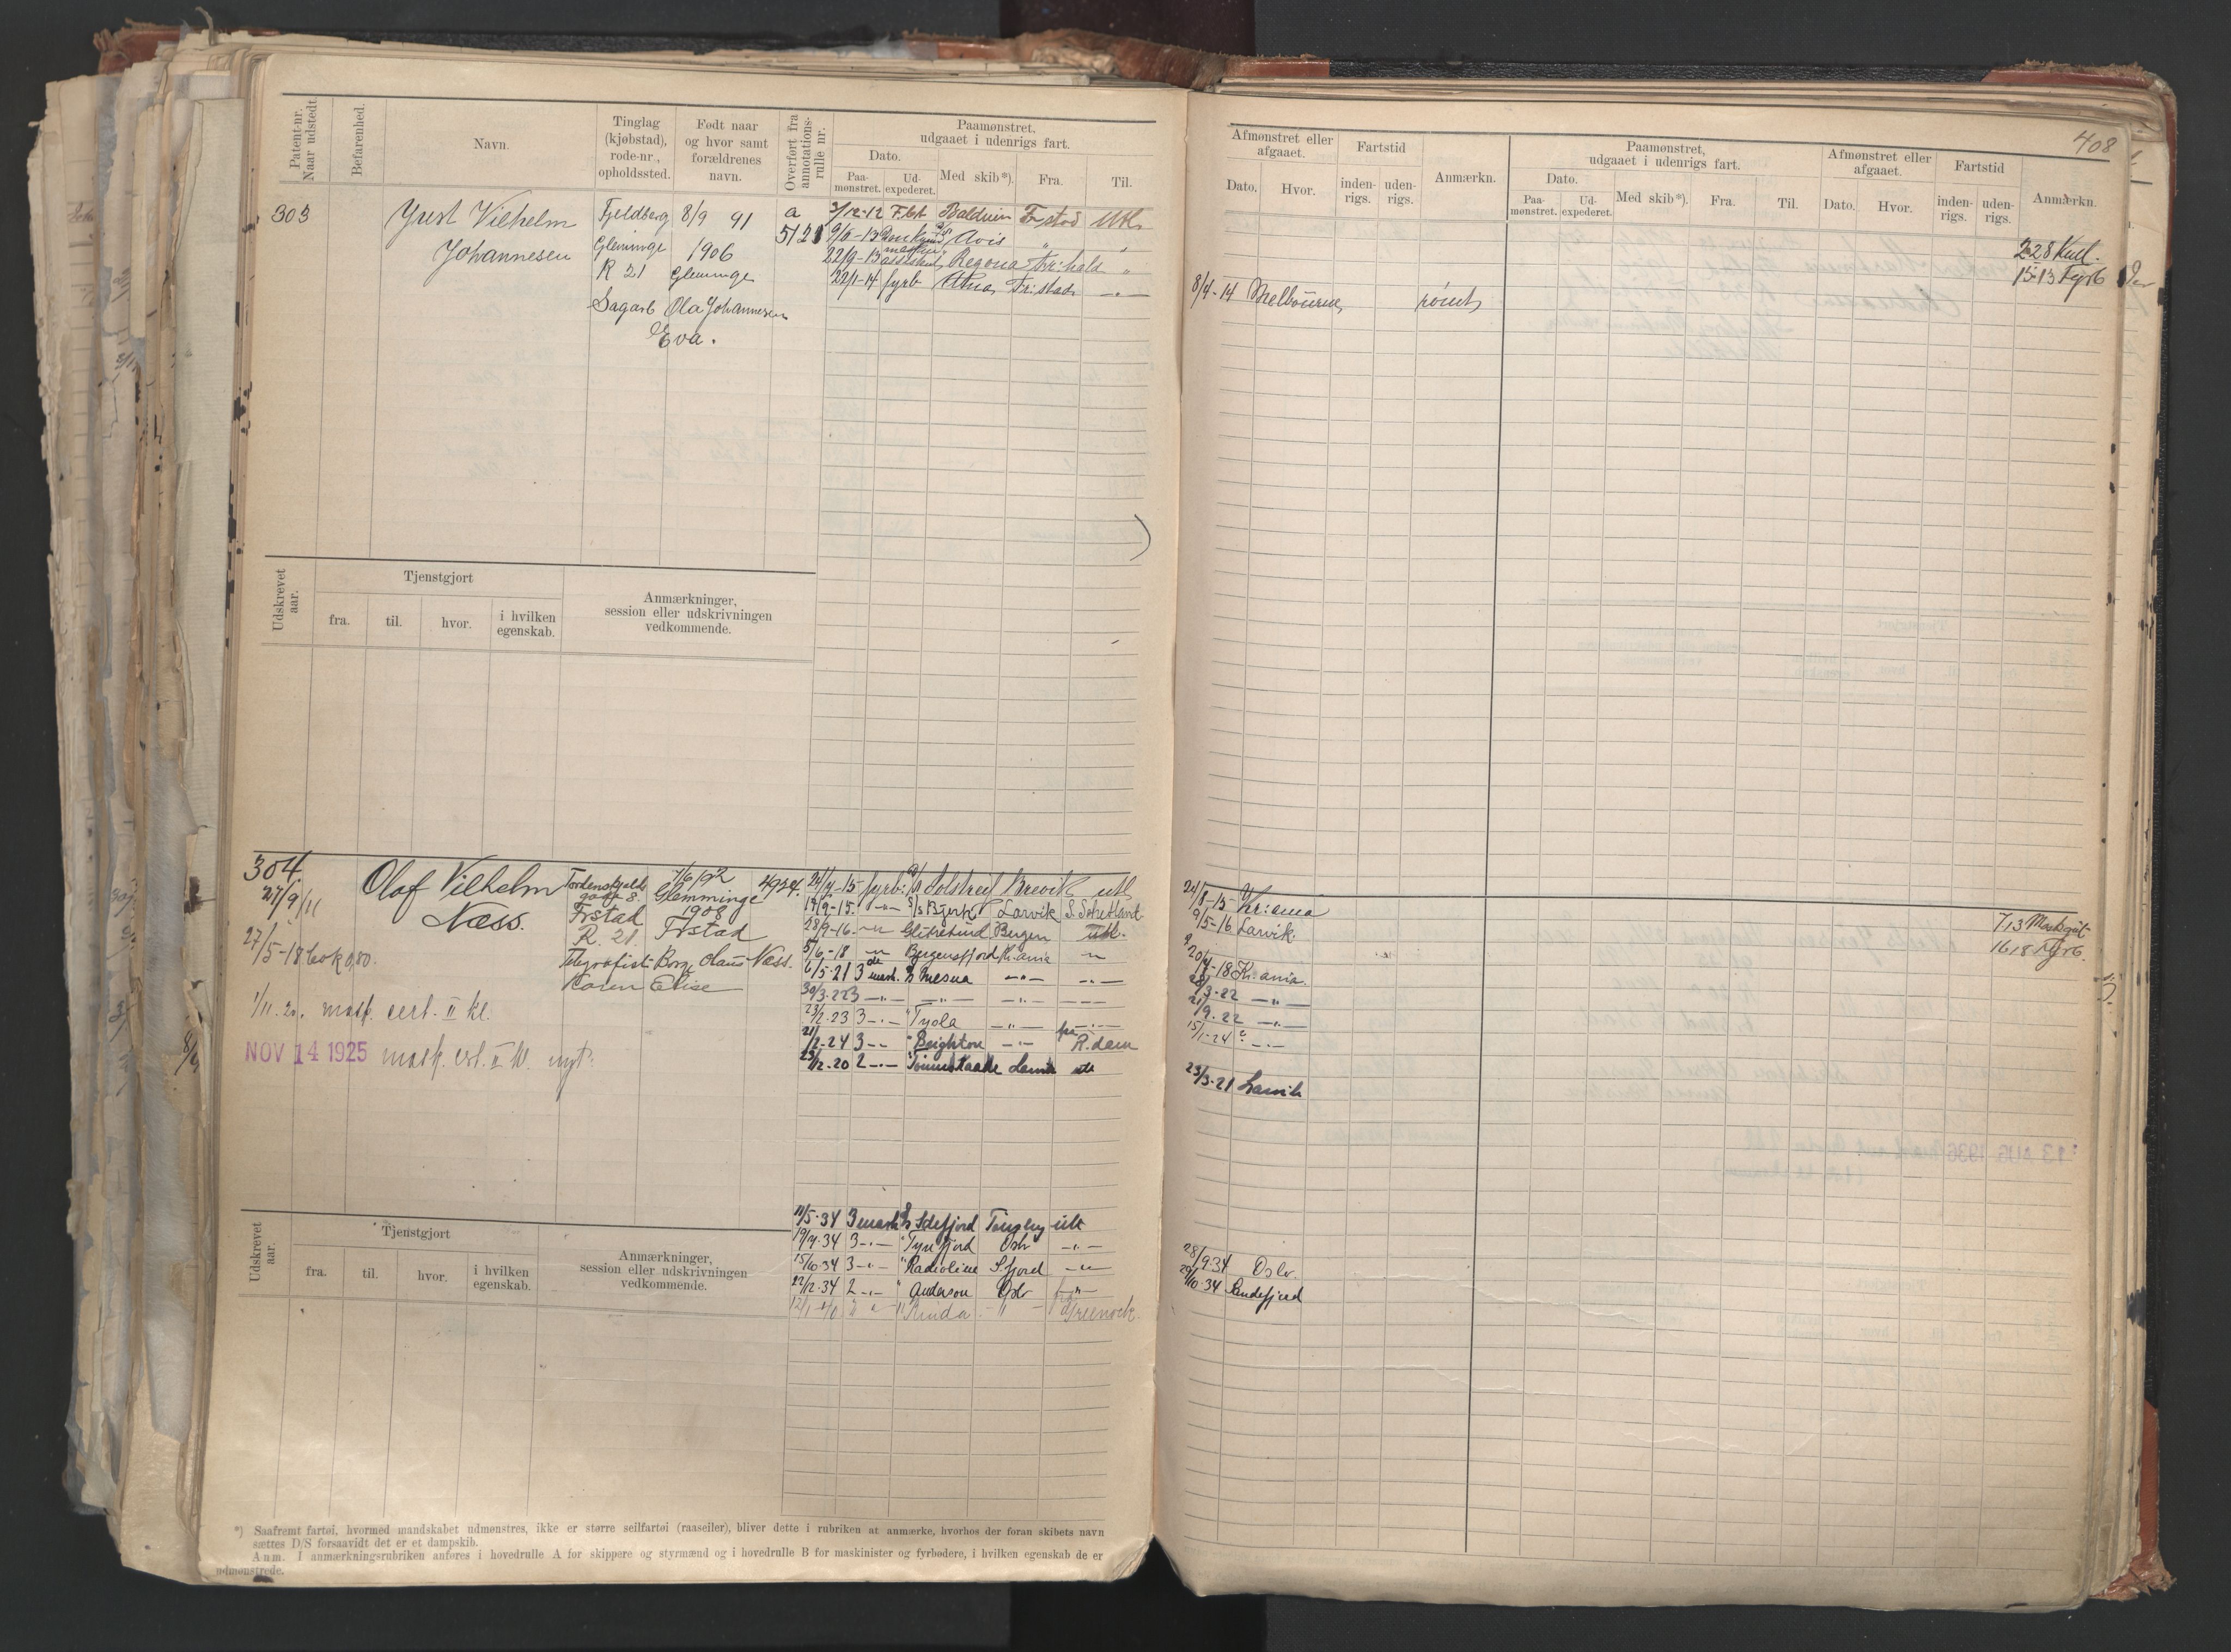 408
Patent-nr. Naar udstedt.
Befarenhed.
Navn.
Tinglag (kjøbstad), rode-nr., opholdssted.
Født naar og hvor samt forældrenes navn.
Overført fra annotations-rulle nr.
Paamønstret, udgaaet i udenrigs fart.
Dato.
Paa-mønstret.
Ud-expederet.
Med skib*).
Fra.
Til.
Afmønstret eller afgaaet.
Dato.
Hvor.
Fartstid
inden-rigs.
uden-rigs.
Anmærkn.
Paamønstret, udgaaet i udenrigs fart.
Dato.
Paa-mønstret.
Ud-expederet.
Med skib*).
Fra.
Til.
Afmønstret eller afgaaet.
Dato.
Hvor.
Fartstid
inden-rigs.
uden-rigs.
Anmærkn.
303
Just Vilhelm
Johannesen
Fjeldberg
Glemminge
R 21
Sagarb
8/9 91
1906
Glemminge
Ola Johannesen
Eva.
a
5121
3/12-12 F.bt Balduin Fr stad Utl.
Avis " "
22/9-13 assistent Regona Fr:hald "
22/1-14 fyrb Fr:stad —"—
8/4-14 Melbourne rømt
228 Kul.
15-13 Fyrb
Udskrevet aar.
Tjenstgjort
fra.
til.
hvor.
i hvilken egenskab.
Anmærkninger, session eller udskrivningen vedkommende.
304
27/9 11
Olaf Vilhelm
Næss.
Tordenskjolds
gade 8.
Frstad
R. 21.
Telegrafist
7/6 92
Glemminge
1908
Frstad
Borg Claus Næss.
Karen Elise
4924.
27/5-18
1/11.20. mask. cert. II kl.
NOV 14 1925 mask. cert. II kl. nyt.
24/4-15 fyrb: Solstreif Brevik utl
17/9-15. —"— S/s Bjerk Larvik S. Schetland
28/9-16 —"— Glitretind Bergen utl.
5/6-18 —"— Bergensfjord Kr.ania —"—
6/5-21 3 mask. Mesna —"— —"—
30/3-22 3 —"— —"— —"— —"—
23/2-23 3 —"— " Tyola —"— —"—
21/2-24 3 —"— " Brighton —"— R.dam
23/12-20 2 —"— Larvik utl
24/8-15 Kr:ania
9/5-16 Larvik.
20/4-18 Kr.ania.
28/3-22 —"—
21/9.22 —"—
15/1-24 —"—
23/3-21 Larvik
713
1618 Fyrb.
11/5-34 3 mask Idefjord Tønsberg utl
19/7-34 3 —"— " Tyrifjord Oslo —"—
15/10-34 3 —"— " Radioline S.fjord —"—
22/12-34 2 —"— " Anderson Oslo —"—
12/1-40 " " " Rinda —"— Greenock.
28/9 34 Oslo.
29/10-34 Sandefjord
Udskrevet aar.
Tjenstgjort
fra.
til.
hvor.
i hvilken egenskab.
Anmærkninger, session eller udskrivningen vedkommende.
*) Saafremt fartøi, hvormed mandskabet udmønstres, ikke er større seilfartøi (raaseiler), bliver dette i rubriken at anmærke, hvorhos der foran skibets navn
sættes D/S forsaavidt det er et dampskib.
Anm. I anmærkningsrubriken anføres i hovedrulle A for skippere og styrmænd og i hovedrulle B for maskinister og fyrbødere, i hvilken egenskab de er
udmønstrede.